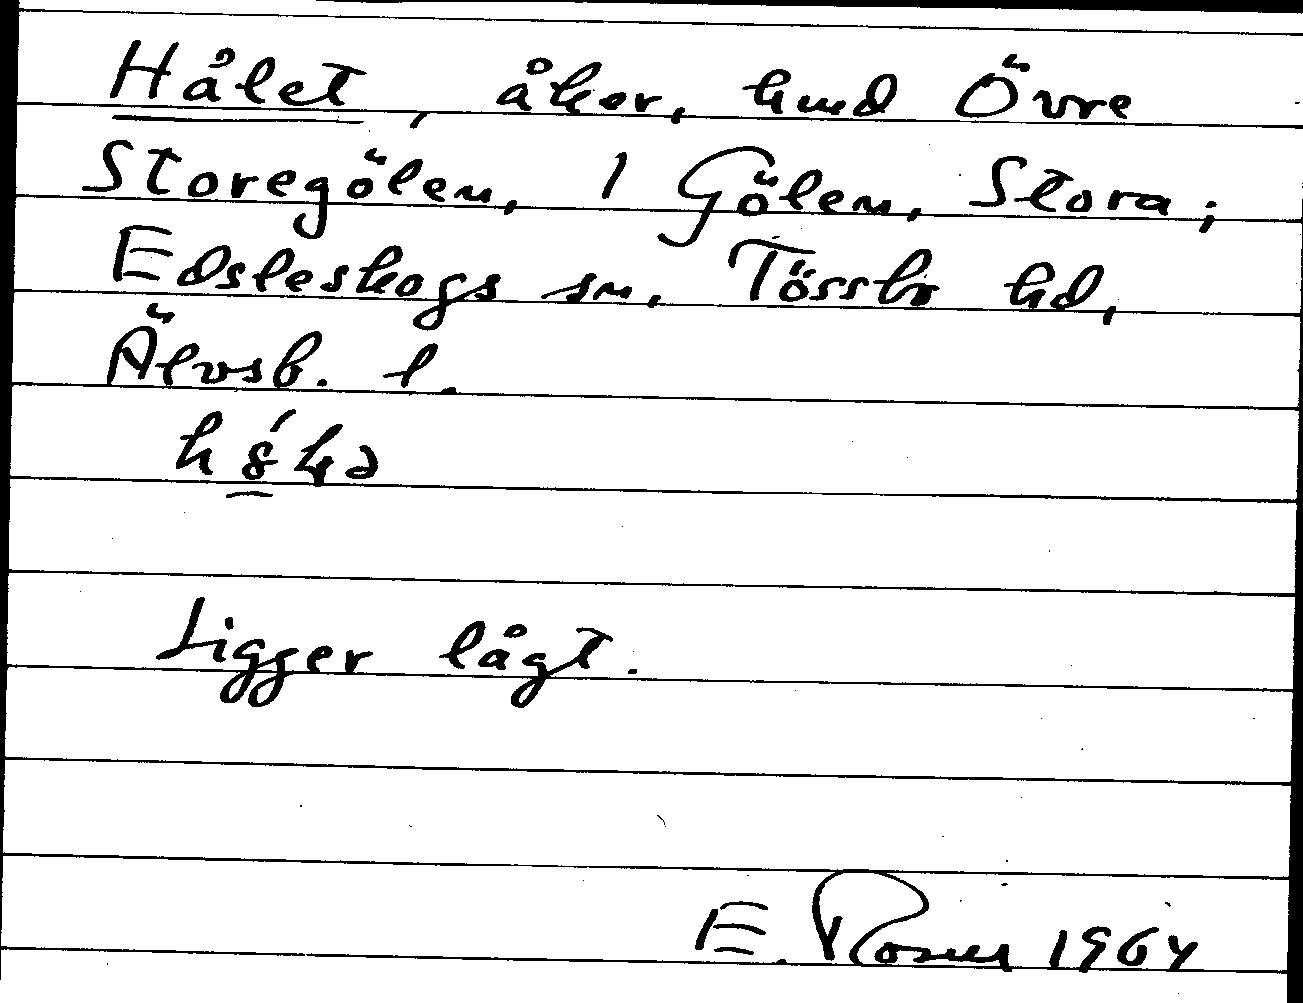 Hålet, åker, hmd Övre
Storegölen, 1 Gölen, Stora;
Edsleskogs sn, Tössbo hd,
Älvsb. l.
Ligger lågt.
E. Rosell 1964